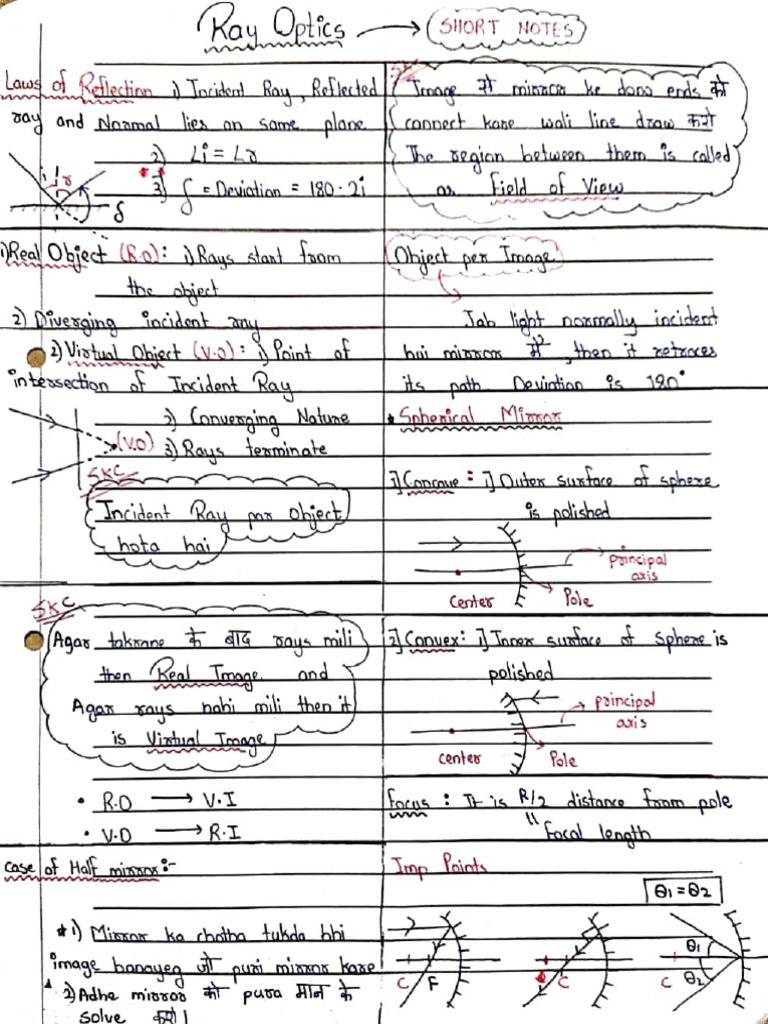 Ray Optics → SHORT NOTES
Laws of Reflection 1) Incident Ray, Reflected
ray and Normal lies on same plane
2) ∠i = ∠r
3) δ = Deviation = 180 - 2i
i r
δ
SKC
Image से mirror ke dono ends को
connect kare wali line draw करो
The region between them is called
as Field of View
1) Real Object (R.O): 1) Rays start from
the object
2) Diverging incident ray
2) Virtual Object (V.O): 1) Point of
intersection of Incident Ray
2) Converging Nature
(V.O) 3) Rays terminate
SKC
Incident Ray par Object
hota hai
Object per Image
Jab light normally incident
hui mirror में, then it retraces
its path Deviation is 180°
* Spherical Mirror
1] Concave : 1] Outer surface of sphere
is polished
principal
axis
center Pole
SKC
Agar takrane के बाद rays mili
then Real Image and
Agar rays nahi mili then it
is Virtual Image
2] Convex: 1] Inner surface of sphere is
polished
principal
axis
center Pole
• R.O → V.I
• V.O → R.I
Focus : It is R/2 distance from pole
"Focal length
Case of Half mirror:-
* 1) Mirror ka chotha tukda bhi
image banayeg जो puri mirror kare
2) Adhe mirror को pura मान के
solve करो।
Imp Points
θ1 = θ2
C F
C
C θ1
θ2